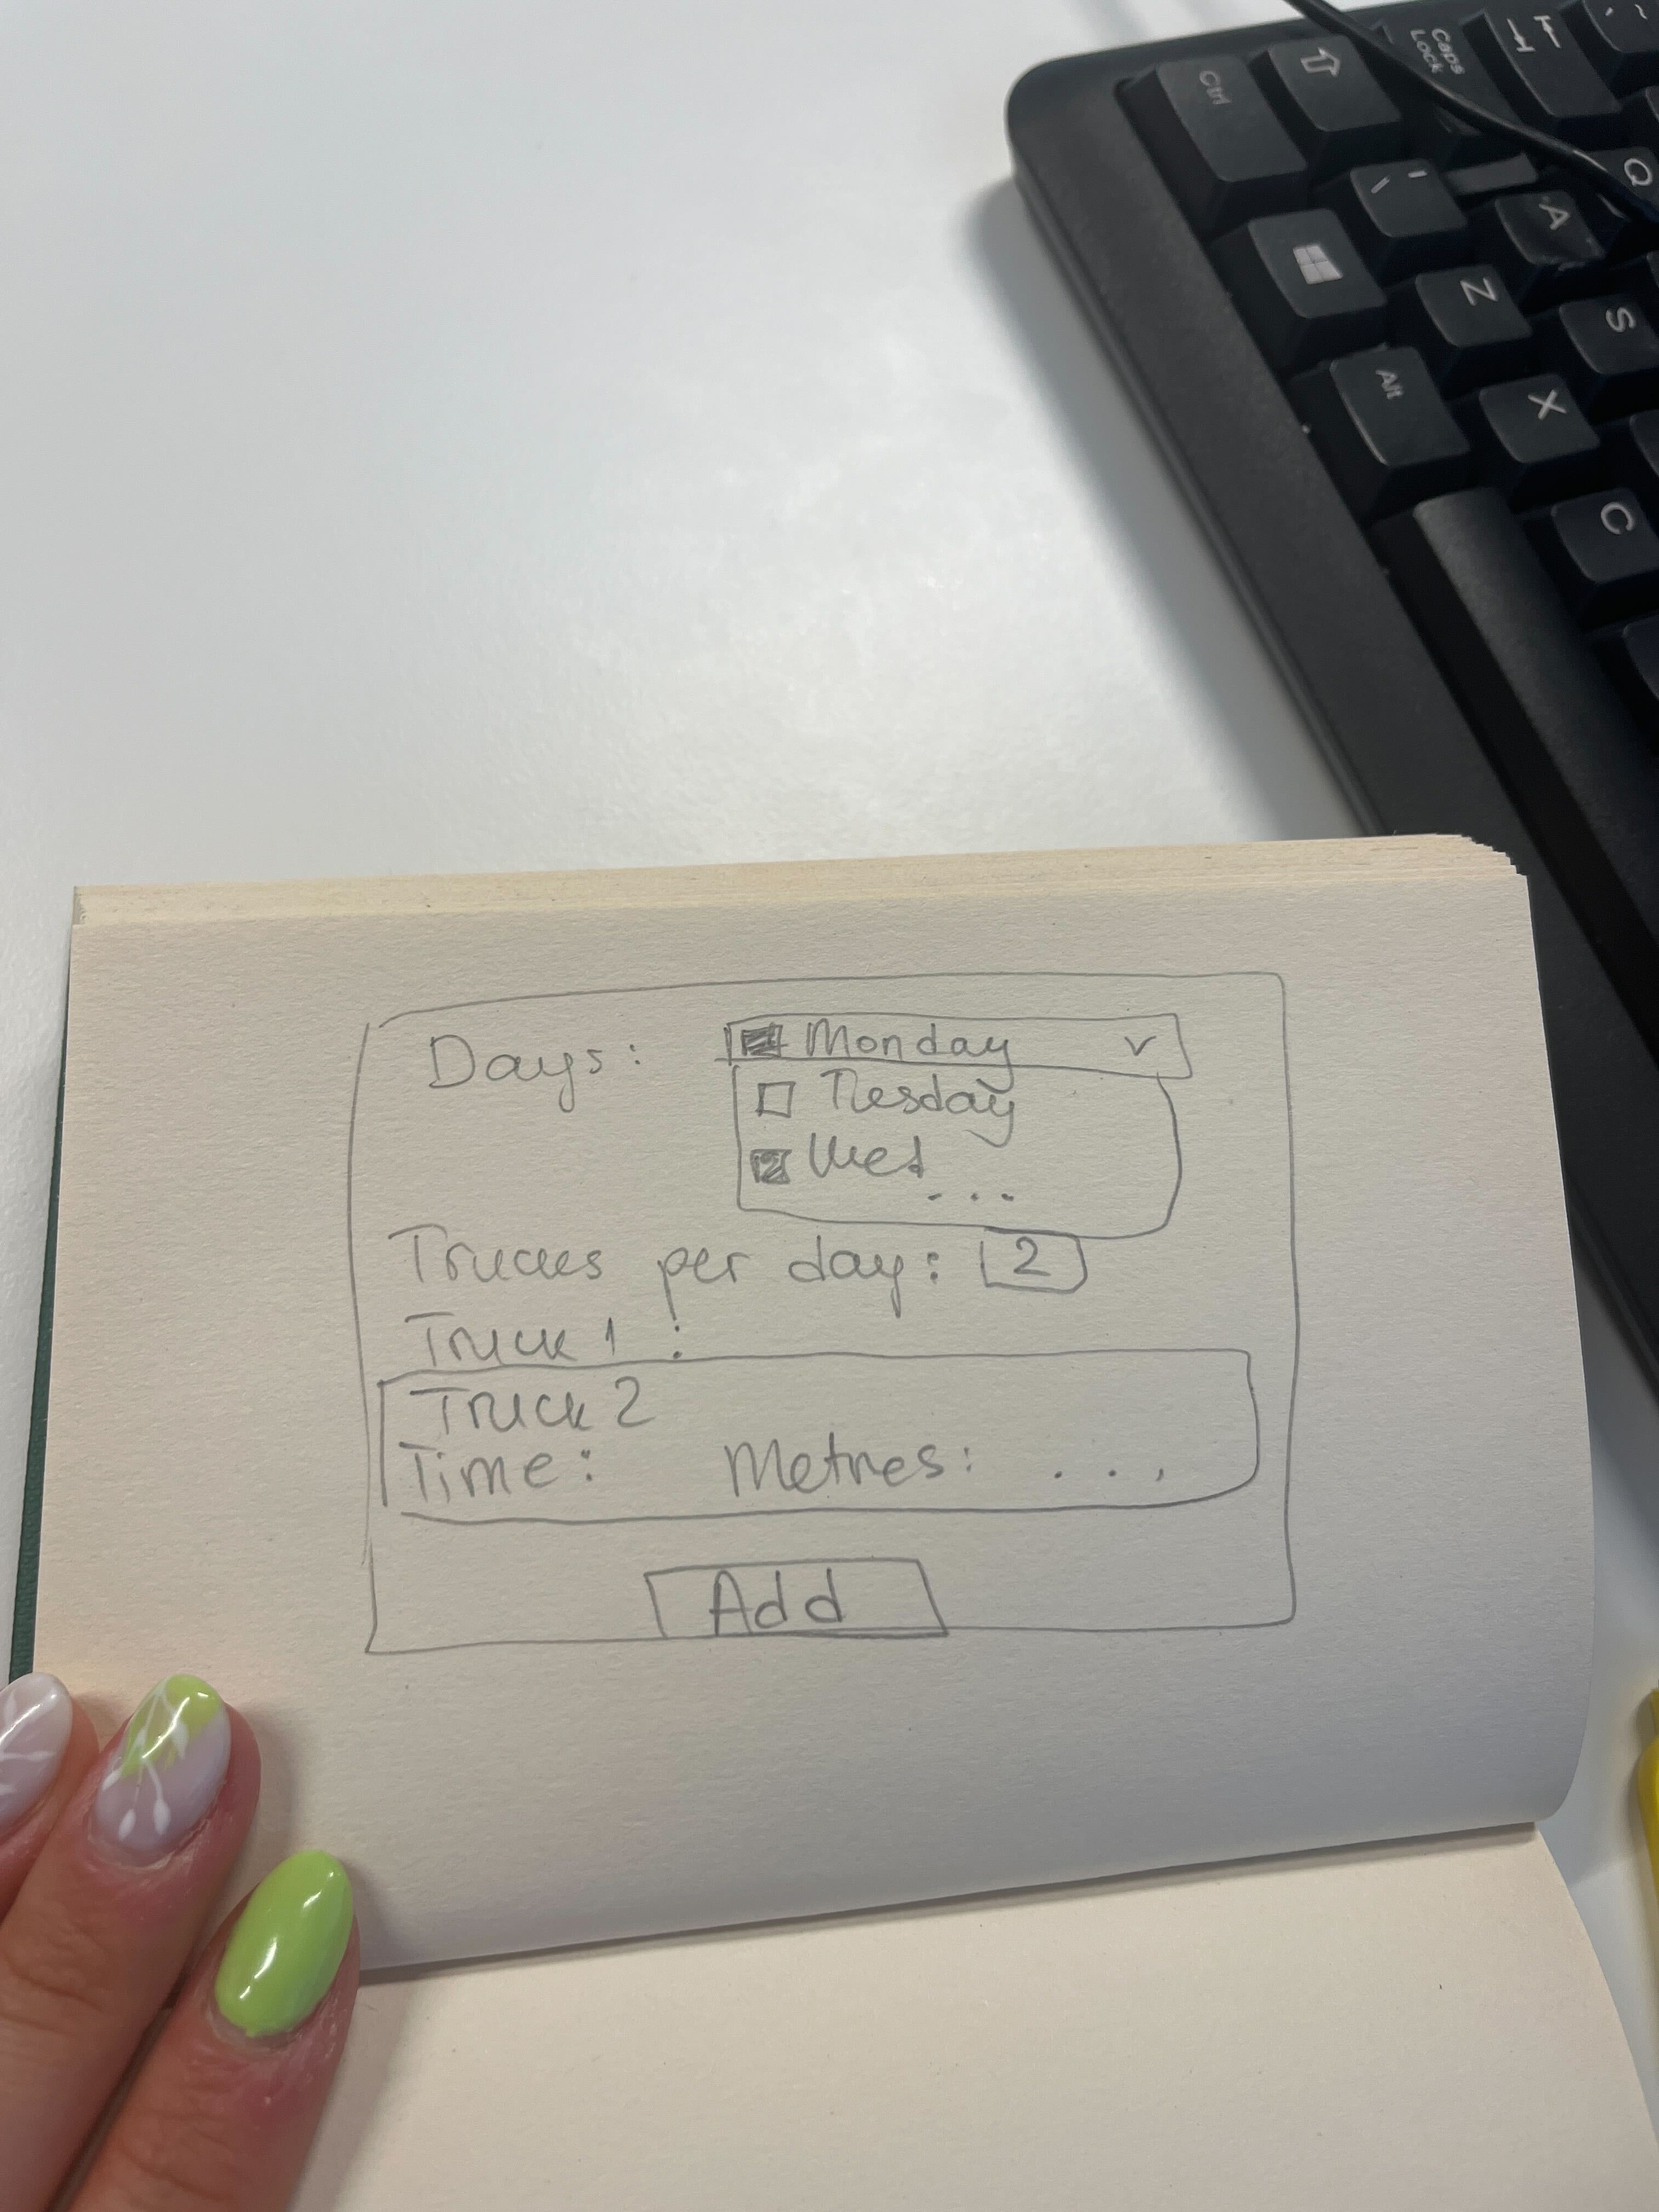 Ctrl
Caps
Lock
Q
A
Z
S
Alt
X
C
Days: Monday v
Tuesday
Wed
...
Trucks per day: 2
Truck 1 :
Truck 2
Time: Metres: ...
Add